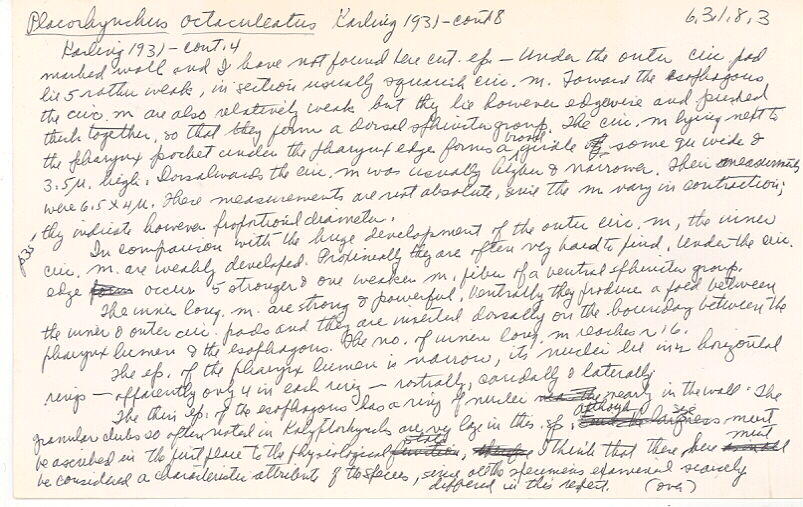 Placorhynchus octaculeatus Karling 1931-cont 8 6.3.1.8.3
Karling 1931 - cont. 4
marked wall and I have not found here cut. ep. — Under the outer circ. pad
lie 5 rather weak, in section usually squarish circ. m. Toward the esophagous
the circ. m are also relatively weak but they lie however edgewise and pushed
thick together, so that they form a dorsal sphincter group. The circ. m lying next to
the pharynx pocket under the pharynx edge forms a broad girdle of some 9µ wide &
3.5µ. high. Dorsalwards the circ. m was usually higher & narrower. Their measurements
were 6.5 x 4µ. These measurements are not absolute, since the m vary in contraction;
they indicate however proportional diameter.
p35
In comparison with the huge development of the outer circ. m, the inner
circ. m. are weakly developed. Proximally they are often very hard to find. Under the circ.
edge form occur 5 stronger & one weaker m. fiber of a ventral sphincter group.
The inner long. m. are strong & powerful. Ventrally they produce a fold between
the inner & outer circ. pads and they are inserted dorsally on the boundary between the
pharynx lumen & the esophagous. The no. of inner long. m reaches 16.
The ep. of the pharynx lumen is narrow, its nuclei lie in horizontal
rings — apparently only 4 in each ring — rostrally, caudally & laterally
The thin ep. of the esophagous has a ring of nuclei nearly in the wall. The
granular clubs so often noted in Kalyptorhynchs are very large in this sp. Although size must
be ascribed in the first place to the physiological state, I think that these here must
be considered a characteristic attribute of the species, since all the specimens examined scarcely
differed in this respect. (over)